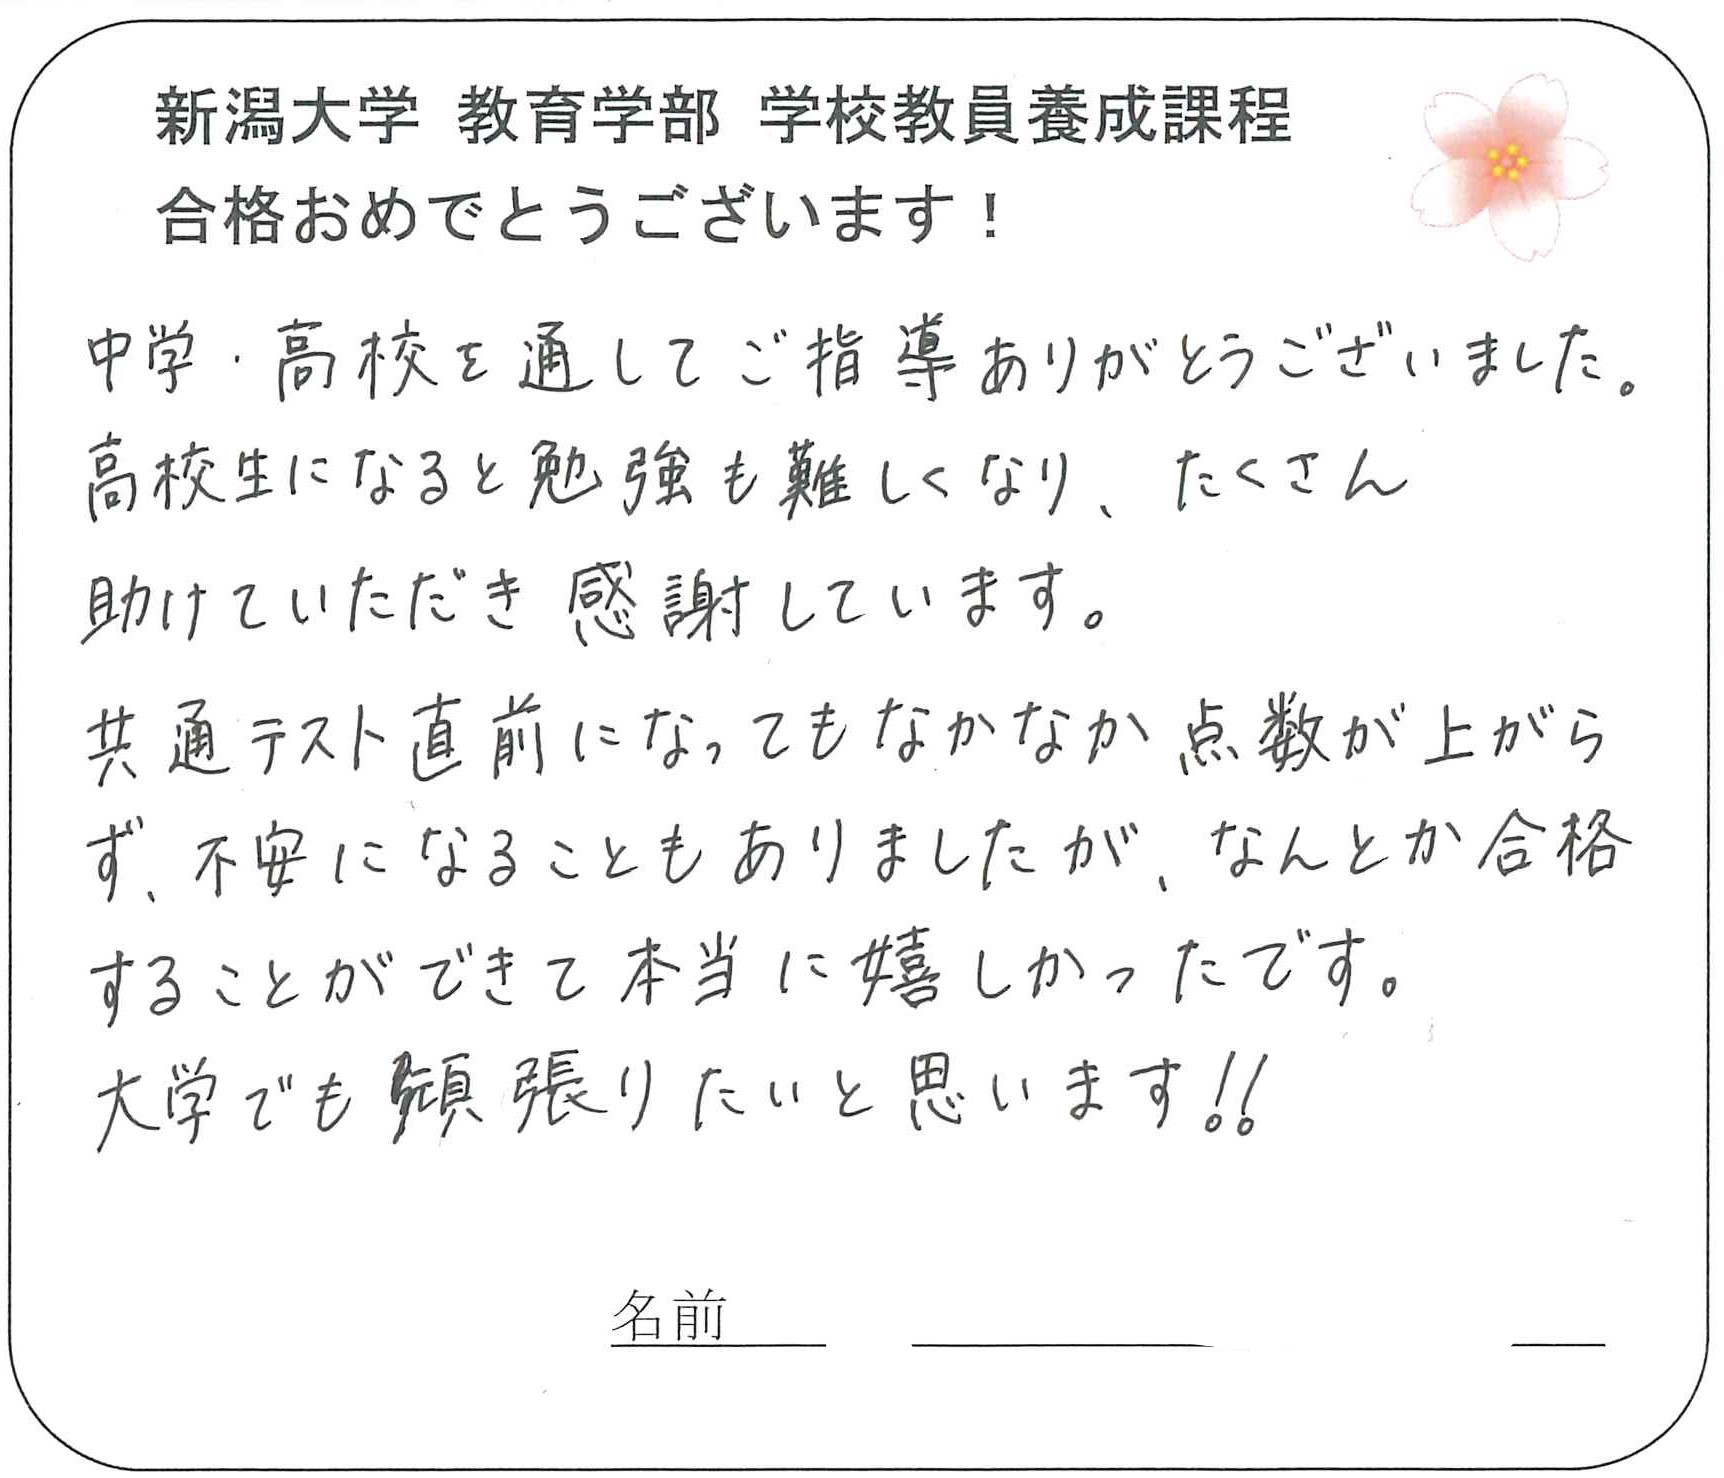 新潟大学 教育学部 学校教員養成課程
合格おめでとうございます！
中学・高校を通してご指導ありがとうございました。
高校生になると勉強も難しくなり、たくさん
助けていただき感謝しています。
共通テスト直前になってもなかなか点数が上がら
ず、不安になることもありましたが、なんとか合格
することができて本当に嬉しかったです。
大学でも頑張りたいと思います!!
名前